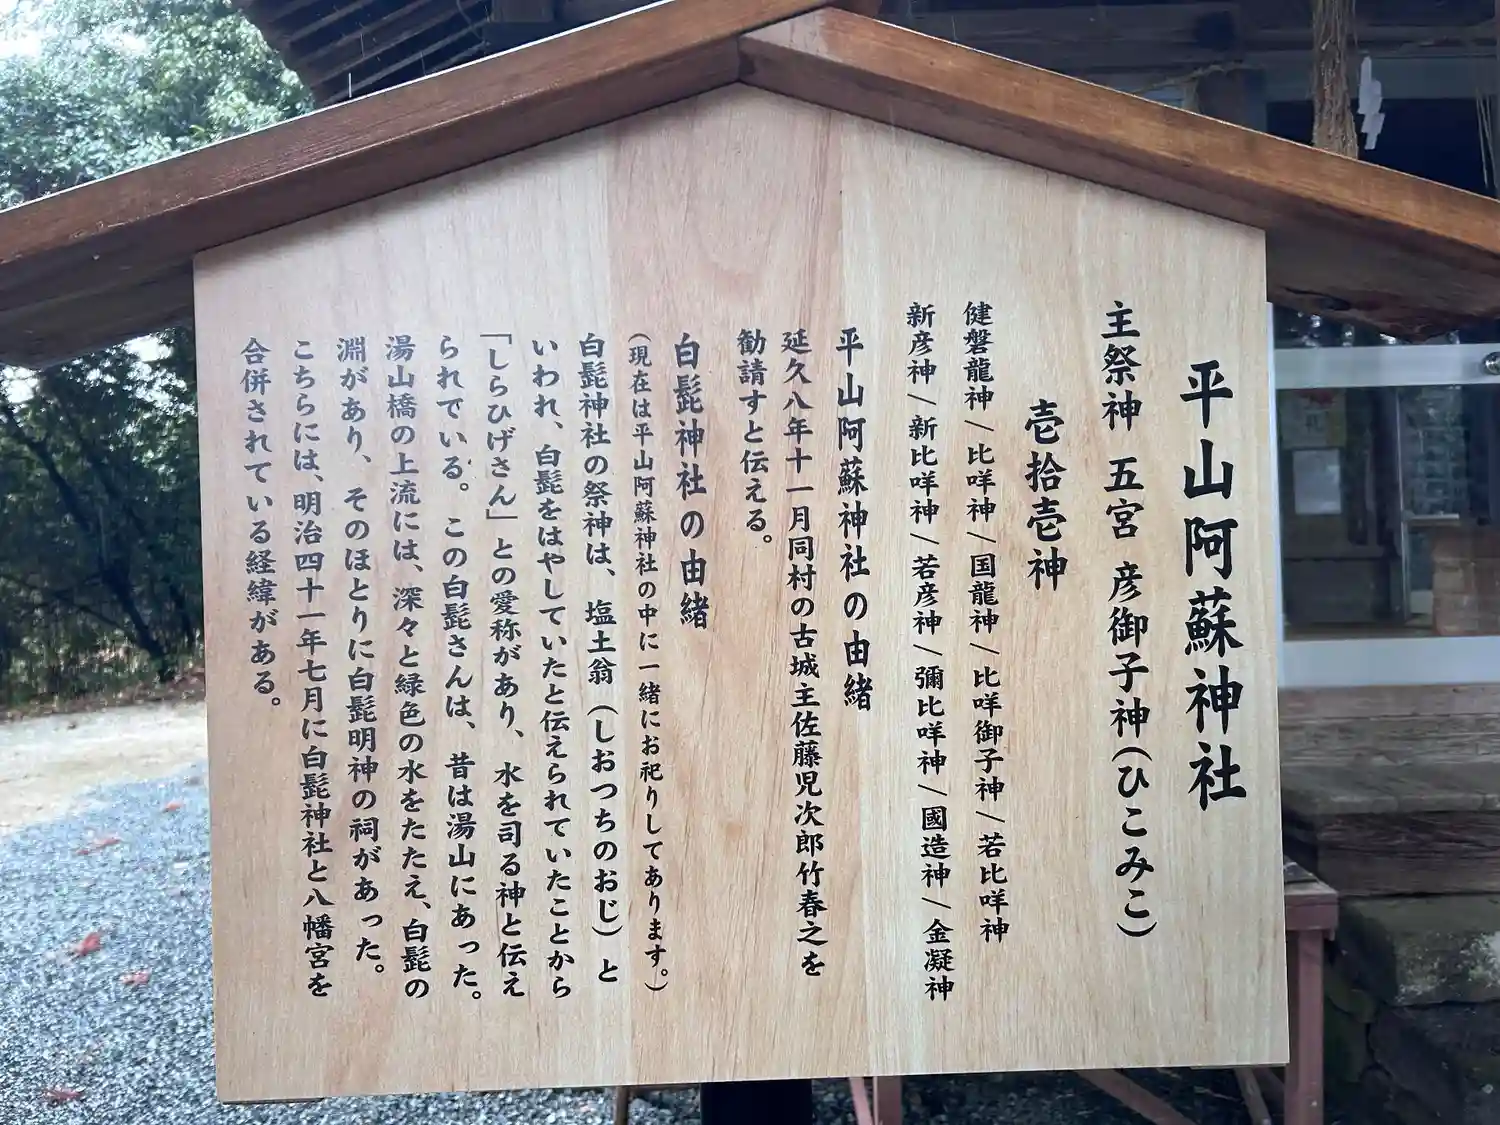 平山阿蘇神社
主祭神 五宮 彦御子神(ひこみこ)
壱拾壱神
健磐龍神/比咩神/国龍神/比咩御子神/若比咩神
新彦神/新比咩神/若彦神/彌比咩神/國造神/金凝神
平山阿蘇神社の由緒
延久八年十一月同村の古城主佐藤児次郎竹春之を
勧請すと伝える。
白髭神社の由緒
(現在は平山阿蘇神社の中に一緒にお祀りしてあります。)
白髭神社の祭神は、塩土翁(しおつちのおじ)と
いわれ、白髭をはやしていたと伝えられていたことから
「しらひげさん」との愛称があり、水を司る神と伝え
られている。この白髭さんは、昔は湯山にあった。
湯山橋の上流には、深々と緑色の水をたたえ、白髭の
淵があり、そのほとりに白髭明神の祠があった。
こちらには、明治四十一年七月に白髭神社と八幡宮を
合併されている経緯がある。